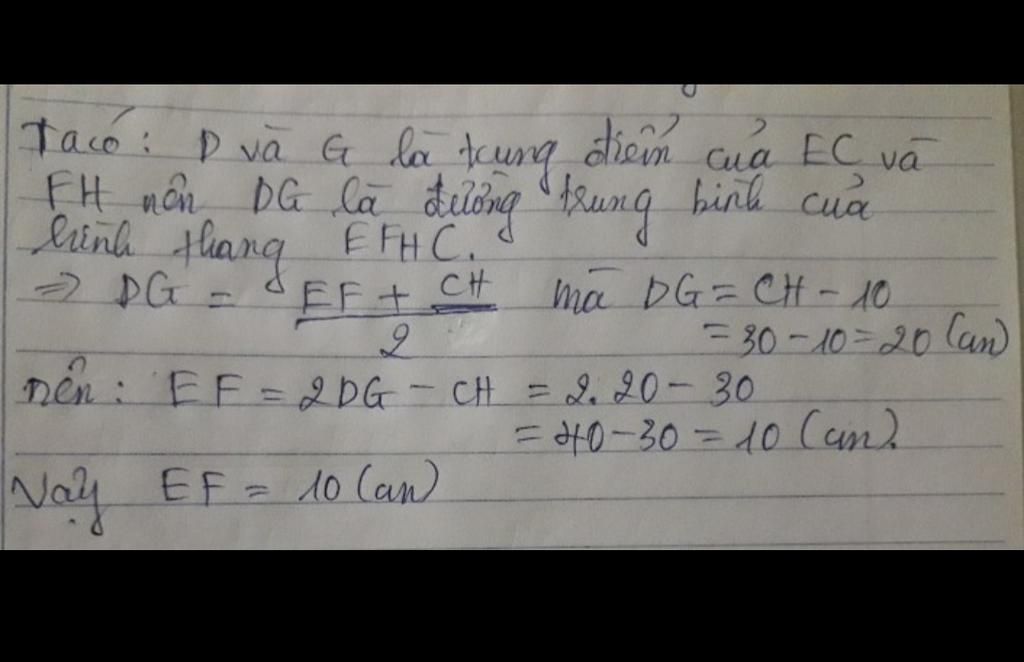 Ta có: D và G là trung điểm của EC và
FH nên DG là đường trung bình của
hình thang EFHC.
=> DG = (EF + CH)/2 mà DG = CH - 10
= 30 - 10 = 20 (cm)
nên: EF = 2DG - CH = 2.20 - 30
= 40 - 30 = 10 (cm).
Vậy EF = 10 (cm)